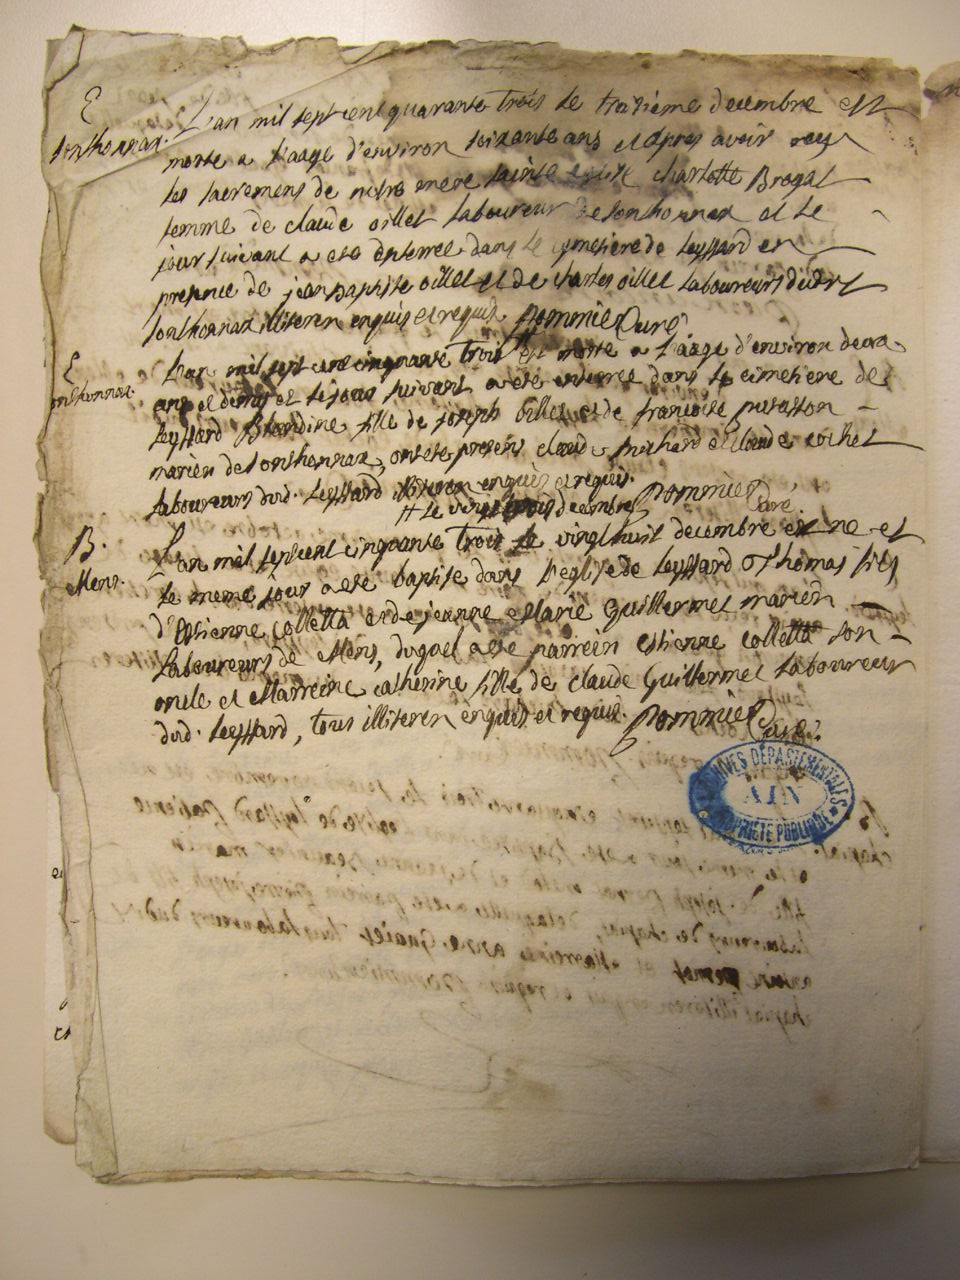 E
Sonthonnax.
L'an mil sept cent quarante trois le treizieme decembre est
morte a l'aage d'environ soixante ans et apres avoir reçu
les sacremens de notre mere sainte eglise charlotte Brogat
femme de claude oillet laboureur de sonthonnax et le
jour suivant a eté enterree dans le cimetiere de leyssard en
presence de jean Baptiste oillet et de charles oillet laboureurs dudit
sonthonnax illiteren enquis et requis. Pommier Curé
E
sonthonnax.
L'an mil sept cent cinquante trois est morte a l'aage d'environ deux
ans et demis et le jour suivant a eté enterree dans le cimetiere de
leyssard Blandine fille de joseph oillet et de francoise
mariën de sonthonnax, ont eté presens claude michard et claude cochet
laboureurs dud. leyssard illiteren enquis et requis.
# le vingt trois decembre Pommier Curé.
B.
Mens.
L'an mil sept cent cinquante trois le vingt huit decembre est ne et
le meme jour a eté baptise dans l'eglise de leyssard Thomas fils
d'Estienne colletta et de jeanne Marie Guillermet mariën
laboureurs de Mens, duquel a eté parrein estienne colletta son
oncle et Marreine catherine fille de claude Guillermet laboureur
dud. leyssard, tous illiteren enquis et requis. Pommier Curé.
ARCHIVES DÉPARTEMENTALES
AIN
PROPRIÉTÉ PUBLIQUE